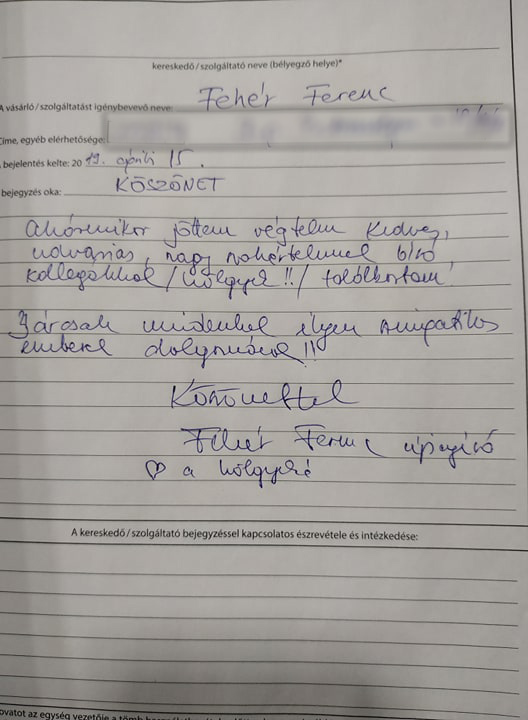 kereskedő/szolgáltató neve (bélyegző helye)*
A vásárló/szolgáltatást igénybevevő neve: Fehér Ferenc
Címe, egyéb elérhetősége:
bejelentés kelte: 2019. április 15.
bejegyzés oka: KÖSZÖNET
Akármikor jöttem végtelen kedves,
udvarias, nagy szakértelmmel bíró
kollégákkal /hölgyek!!/ találkoztam
mindenhol ilyen szimpatikus
emberek
Köszönettel
Fehér Ferenc újságíró
♡ a hölgyeké
A kereskedő/szolgáltató bejegyzéssel kapcsolatos észrevétele és intézkedése: